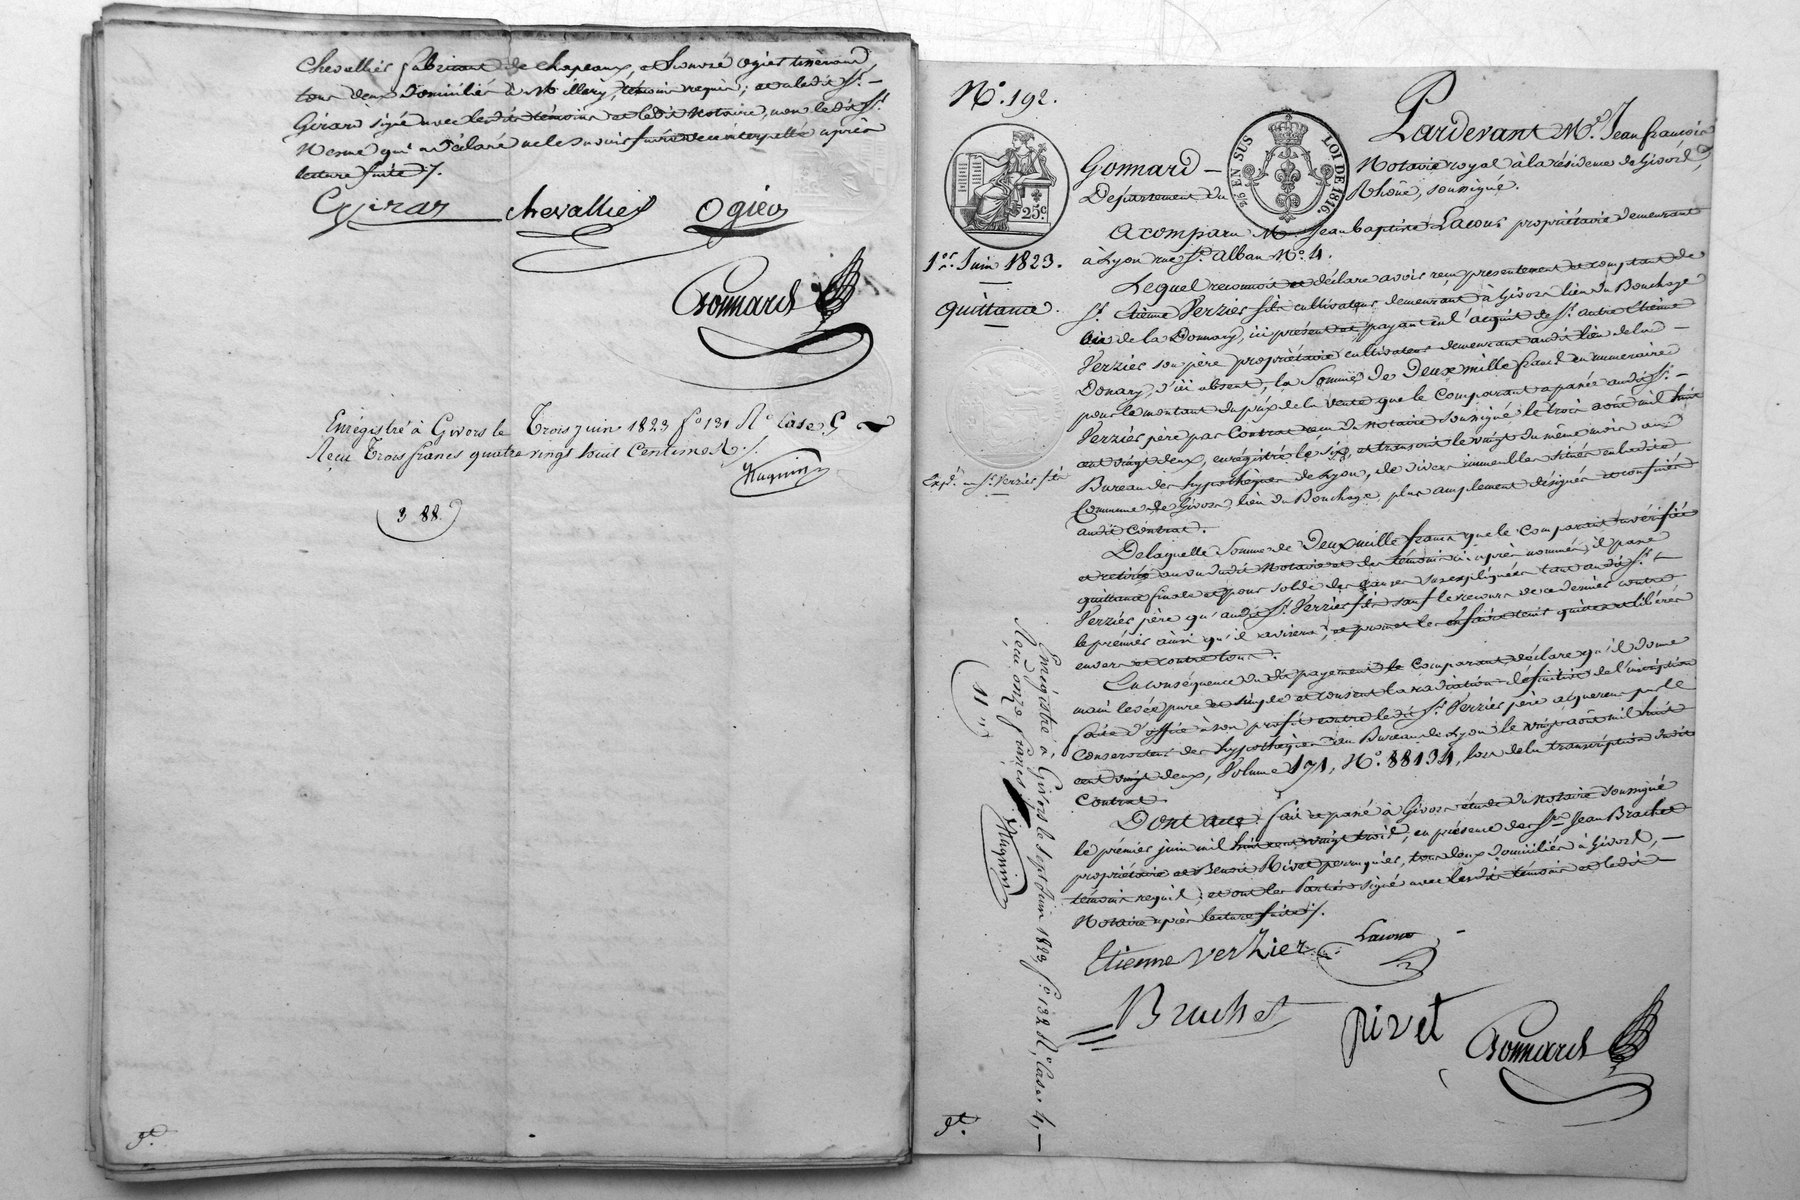 Chevallier fabricant de chapeaux, et honoré Ogier tisserand,
tous deux domiciliés à Millery, témoins requis; et a ledit Sr.
Girard signé avec lesdits témoins et ledit Notaire, non ledit Sr.
qui a déclaré ne le savoir faire de ce interpellé après
lecture faite ./.
Girard chevallier Ogier
Gonnard
Enrégistré à Givors le Trois juin 1823 fo. 131 Ro. Case 5
Reçu Trois francs quatre vingt huit Centimes ./.
Huguin
3 88.
No. 192.
25c
26 EN SUS LOI DE 1816
1er. Juin 1823.
Quittance.
Expd. au Sr. Verzier fils
Pardevant Me. Jean françois
Gonnard — Notaire royal à la résidence de Givors,
Département du Rhône, soussigné.
A comparu Mr. Jean baptiste Lacour propriétaire demeurant
à Lyon rue St. alban No. 4.
Lequel reconnoit et déclare avoir reçu présentement et comptant de
Sr. Etienne Verzier fils cultivateur demeurant à Givors lieu du Bouchage
de la Donnary, ici présent et payant en l'acquit de Sr. autre Etienne
Verzier son père propriétaire cultivateur demeurant audit lieu de la
Donary, d'ici absent, la Somme de Deux mille francs en numeraire
pour le montant du prix de la vente que le Comparant a passée audit Sr.
Verzier père par Contrat reçu du Notaire soussigné le trois août mil huit
cent vingt deux, enrégistré le six, et transcrit le vingt du même mois au
Bureau des hypothèques de Lyon, de divers immeubles situés en ladite
Commune de Givors, lieu du Bouchage, plus amplement désignés et confinés
audit Contrat.
De laquelle Somme de Deux mille francs que le Comparant a vérifiée
et retirée au vu dudit Notaire et des témoins ci après nommés, il passe
quittance finale et pour solde des causes susexpliquées tant audit Sr.
Verzier père qu'audit Sr. Verzier fils sauf le recours de ce dernier contre
le premier ainsi qu'il avisera, et promet les en faire tenir quittes et libérés
envers et contre tous.
En conséquence du dit payement le Comparant déclare qu'il donne
main levée pure et simple et consent la radiation définitive de l'inscription
faite d'office à son profit contre ledit Sr. Verzier père acquereur par le
Conservateur des hypothèques au Bureau de Lyon le vingt août mil huit
cent vingt deux, Volume 171, No. 88134, lors de la transcription dudit
Contrat.
Dont acte: fait et passé à Givors étude du Notaire soussigné
le premier juin mil huit cent vingt trois, en présence des Srs. Jean Brachet
propriétaire et Benoit Rivet perruquier, tous deux domiciliés à Givors,
témoins requis; et ont les Parties signé avec lesdits témoins et ledit
Notaire après lecture faite ./.
Etienne verzier Lacour
Brachet rivet Gonnard
Enrégistré à Givors le sept Juin 1823, fo. 132 Ro. Case 4,
Reçu onze francs
11
Huguin